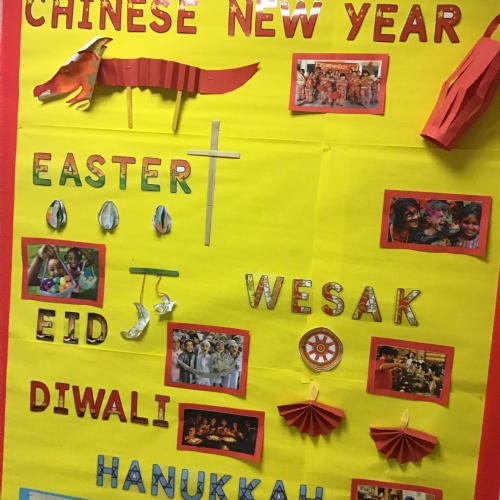 CHINESE NEW YEAR
EASTER
WESAK
EID
DIWALI
HANUKKAH